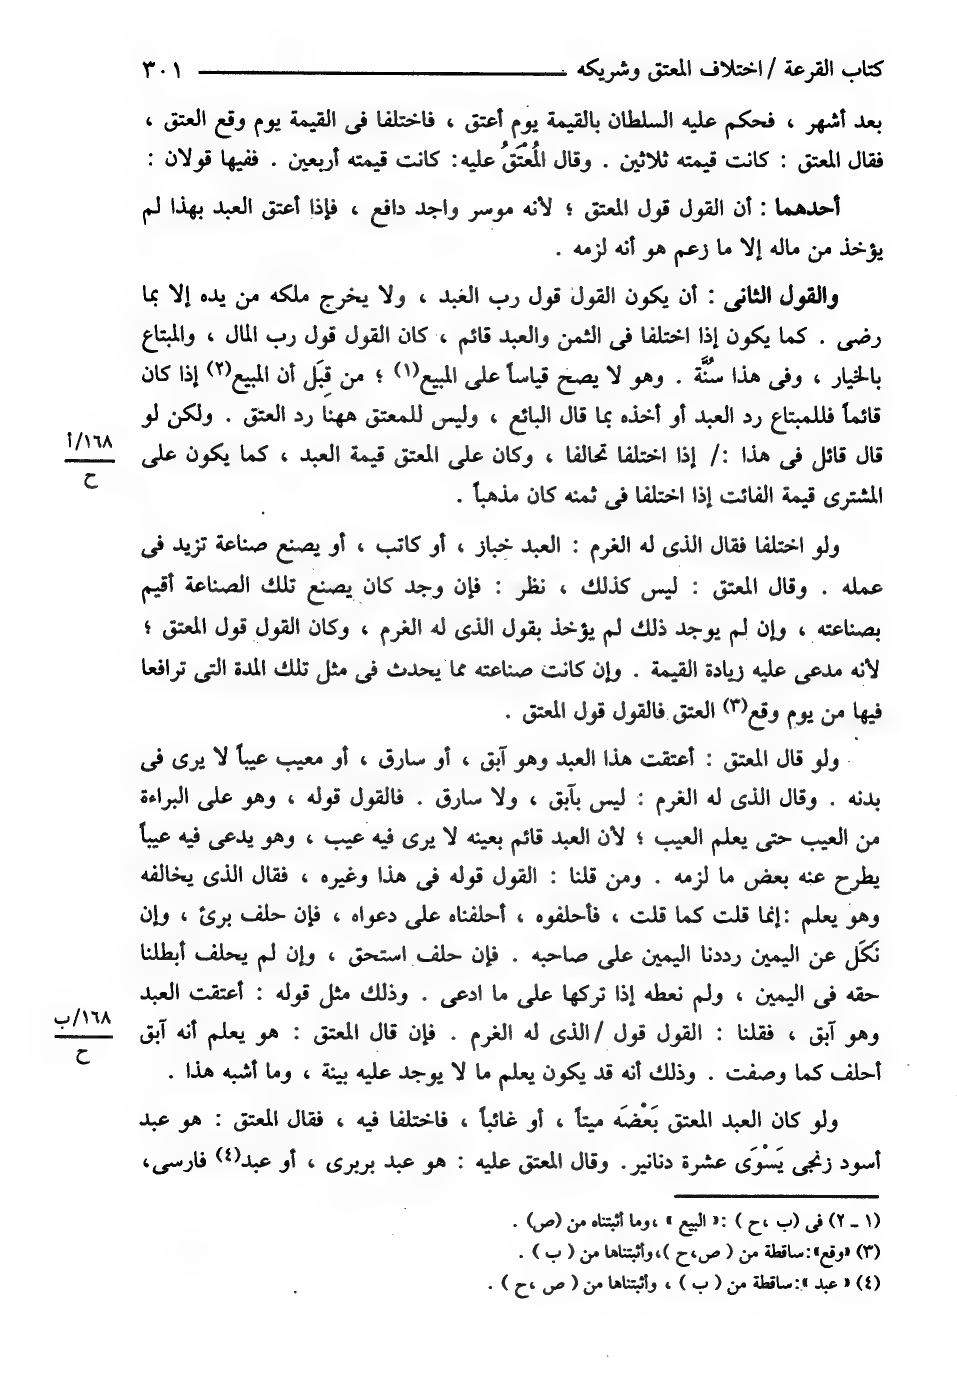 كتاب القرعة / اختلاف المعتق وشريكه ــــــــــــــــــــ ٣٠١
بعد أشهر ، فحكم عليه السلطان بالقيمة يوم أعتق ، فاختلفا فى القيمة يوم وقع العتق ،
فقال المعتق : كانت قيمته ثلاثين . وقال المُعْتَقُ عليه: كانت قيمته أربعين . ففيها قولان :
أحدهما : أن القول قول المعتق ؛ لأنه موسر واجد دافع ، فإذا أعتق العبد بهذا لم
يؤخذ من ماله إلا ما زعم هو أنه لزمه .
والقول الثانى : أن يكون القول قول رب العبد ، ولا يخرج ملكه من يده إلا بما
رضى . كما يكون إذا اختلفا فى الثمن والعبد قائم ، كان القول قول رب المال ، والمبتاع
بالخيار ، وفى هذا سُنَّة . وهو لا يصح قياساً على المبيع(١) ؛ من قِبَل أن المبيع(٢) إذا كان
قائماً فللمبتاع رد العبد أو أخذه بما قال البائع ، وليس للمعتق ههنا رد العتق . ولكن لو
قال قائل فى هذا :/ إذا اختلفا تحالفا ، وكان على المعتق قيمة العبد ، كما يكون على
١٦٨/أ
ح
المشترى قيمة الفائت إذا اختلفا فى ثمنه كان مذهباً .
ولو اختلفا فقال الذى له الغرم : العبد خباز ، أو كاتب ، أو يصنع صناعة تزيد فى
عمله . وقال المعتق : ليس كذلك ، نظر : فإن وجد كان يصنع تلك الصناعة أقيم
بصناعته ، وإن لم يوجد ذلك لم يؤخذ بقول الذى له الغرم ، وكان القول قول المعتق ؛
لأنه مدعى عليه زيادة القيمة . وإن كانت صناعته مما يحدث فى مثل تلك المدة التى ترافعا
فيها من يوم وقع(٣) العتق فالقول قول المعتق .
ولو قال المعتق : أعتقت هذا العبد وهو آبق ، أو سارق ، أو معيب عيباً لا يرى فى
بدنه . وقال الذى له الغرم : ليس بآبق ، ولا سارق . فالقول قوله ، وهو على البراءة
من العيب حتى يعلم العيب ؛ لأن العبد قائم بعينه لا يرى فيه عيب ، وهو يدعى فيه عيباً
يطرح عنه بعض ما لزمه . ومن قلنا : القول قوله فى هذا وغيره ، فقال الذى يخالفه
وهو يعلم :إنما قلت كما قلت ، فأحلفوه ، أحلفناه على دعواه ، فإن حلف برئ ، وإن
نَكَل عن اليمين رددنا اليمين على صاحبه . فإن حلف استحق ، وإن لم يحلف أبطلنا
حقه فى اليمين ، ولم نعطه إذا تركها على ما ادعى . وذلك مثل قوله : أعتقت العبد
وهو آبق ، فقلنا : القول قول /الذى له الغرم . فإن قال المعتق : هو يعلم أنه آبق
١٦٨/ب
ح
أحلف كما وصفت . وذلك أنه قد يكون يعلم ما لا يوجد عليه بينة ، وما أشبه هذا .
ولو كان العبد المعتق بَعْضُه ميتاً ، أو غائباً ، فاختلفا فيه ، فقال المعتق : هو عبد
أسود زنجى يَسْوَى عشرة دنانير. وقال المعتق عليه : هو عبد بربرى ، أو عبد(٤) فارسى،
(١ ـ ٢) فى (ب ،ح ) :« البيع » ،وما أثبتناه من (ص) .
(٣) «وقع»:ساقطة من ( ص،ح )،وأثبتناها من ( ب ) .
(٤) « عبد »:ساقطة من ( ب ) ، وأثبتناها من ( ص ،ح ) .